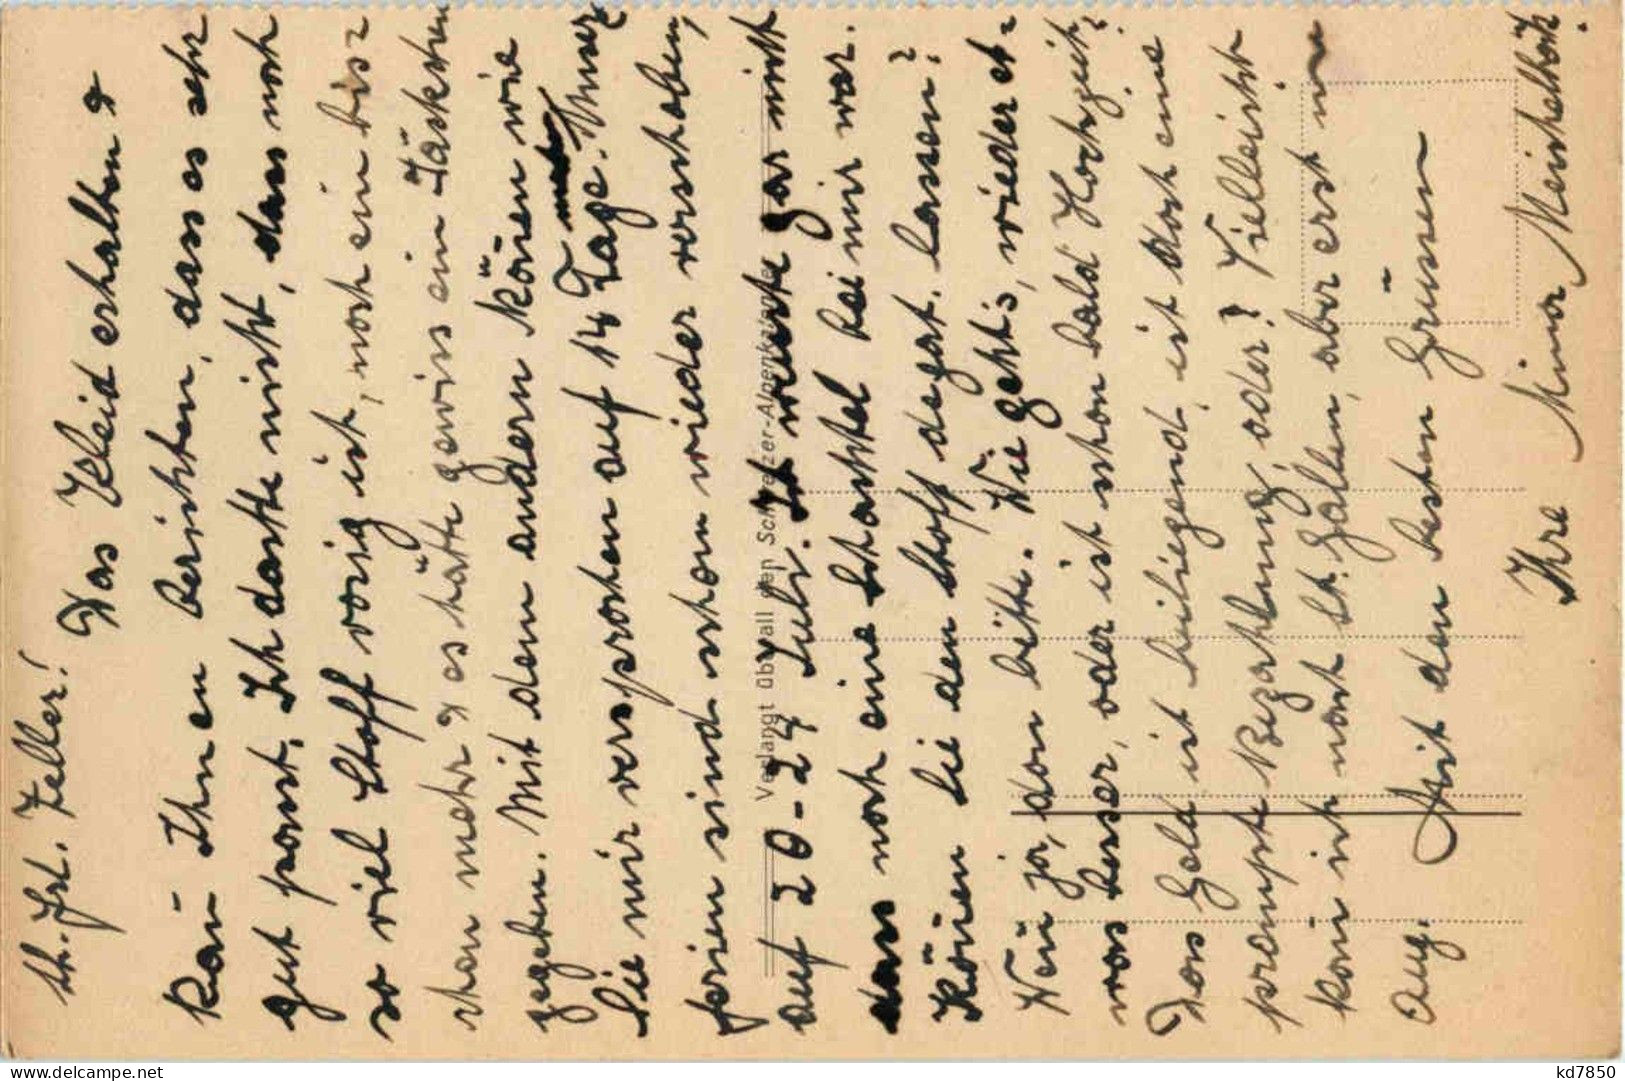 Frl. Zeller!
Das Kleid erhalten &
kan̄ Ihnen berichten, dass es sehr
gut passt. Ich dachte nicht, dass noch
so viel Stoff vorig ist, noch ein bis=
chen mehr & es hätte gewiss ein Täschchen
gegeben. Mit dem andern kön̄en wie
Sie mir versprochen auf 14 Tage.
ferien sind schon wieder verschoben,
auf 20-27 Juli. Ich wusste gar nicht
dass noch eine Schachtel bei mir war.
Kön̄en Sie den Stoff degat. lassen?
Wen̄ ja, dan bitte. Wie geht's, wieder et=
was besser, oder ist schon bald Hochzeit?
Das Geld ist beiliegend, ist doch eine
prompte Bezahlung, oder? Vielleicht
kan̄ ich nach St. Gallen, aber erst im
Aug. Mit den besten Grüssen
Ihre Mina
Verlangt überall den Schweizer-Alpenkalender
kd7850